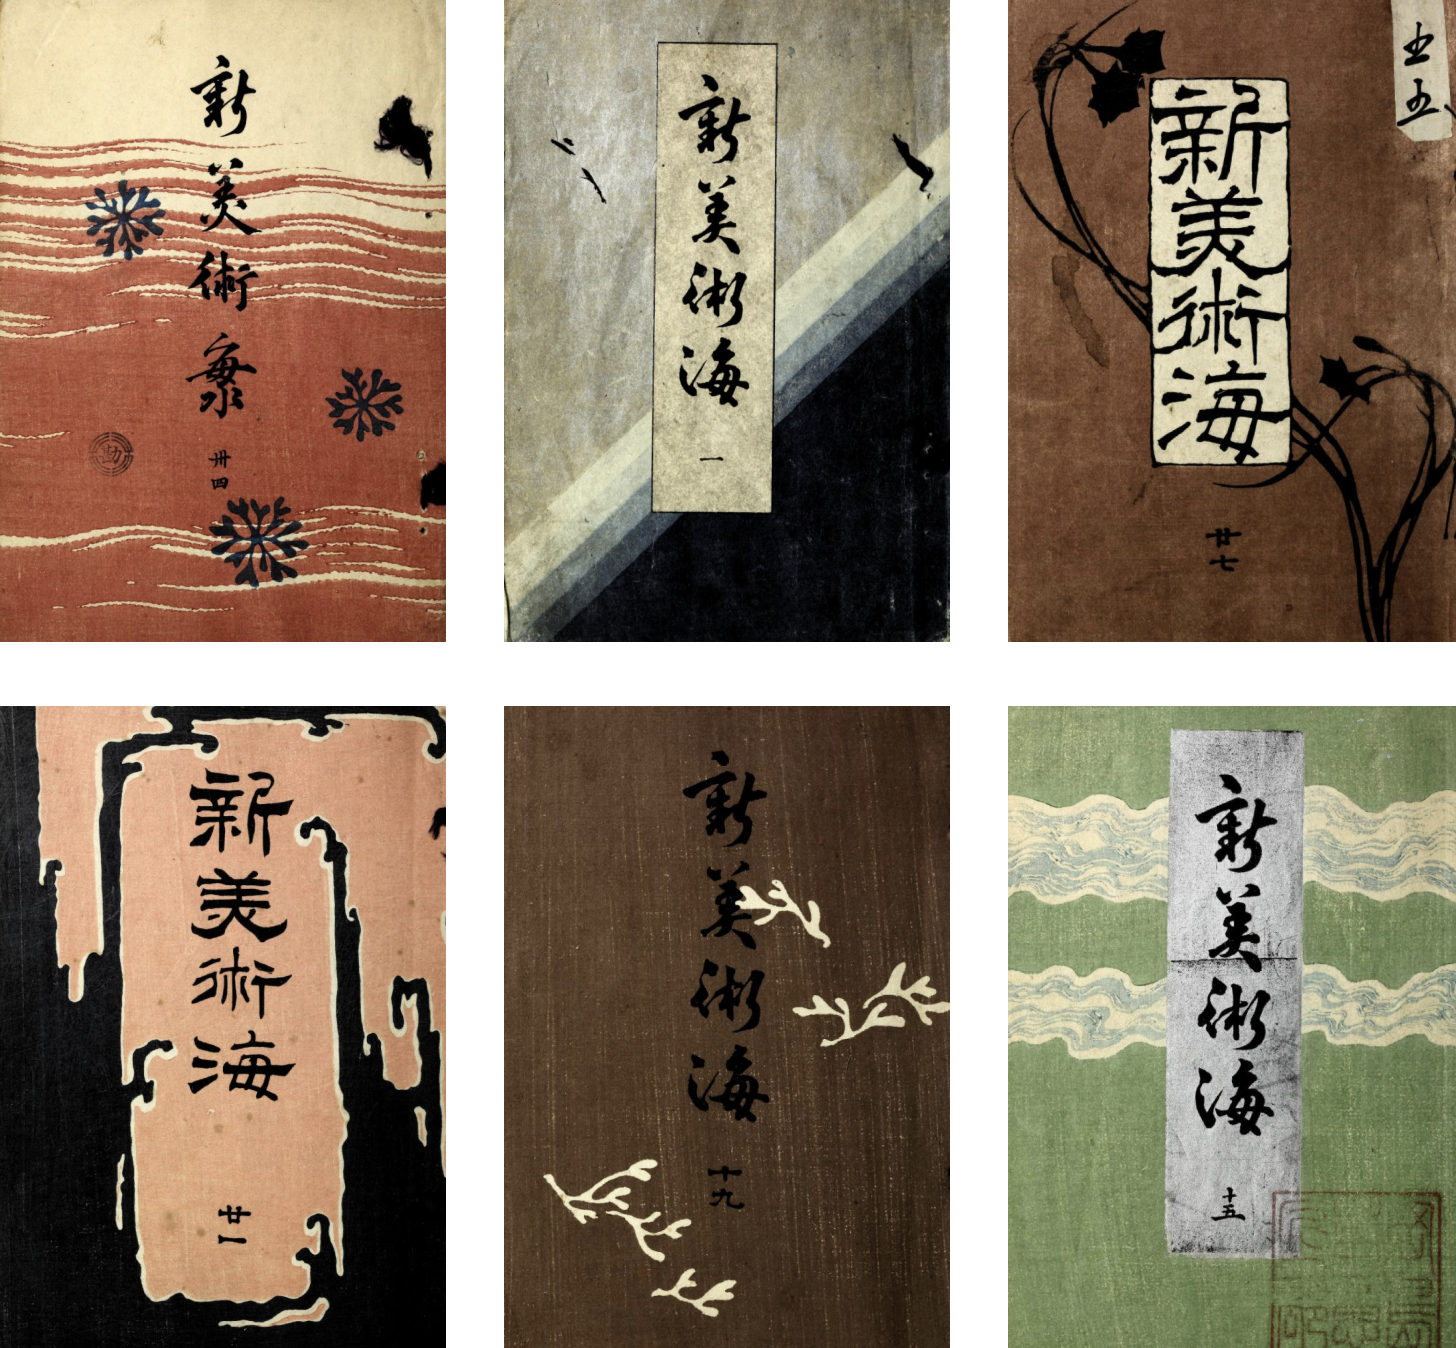 新美術海
卅四
新美術海
一
新美術海
廿七
新美術海
廿一
新美術海
十九
新美術海
十五